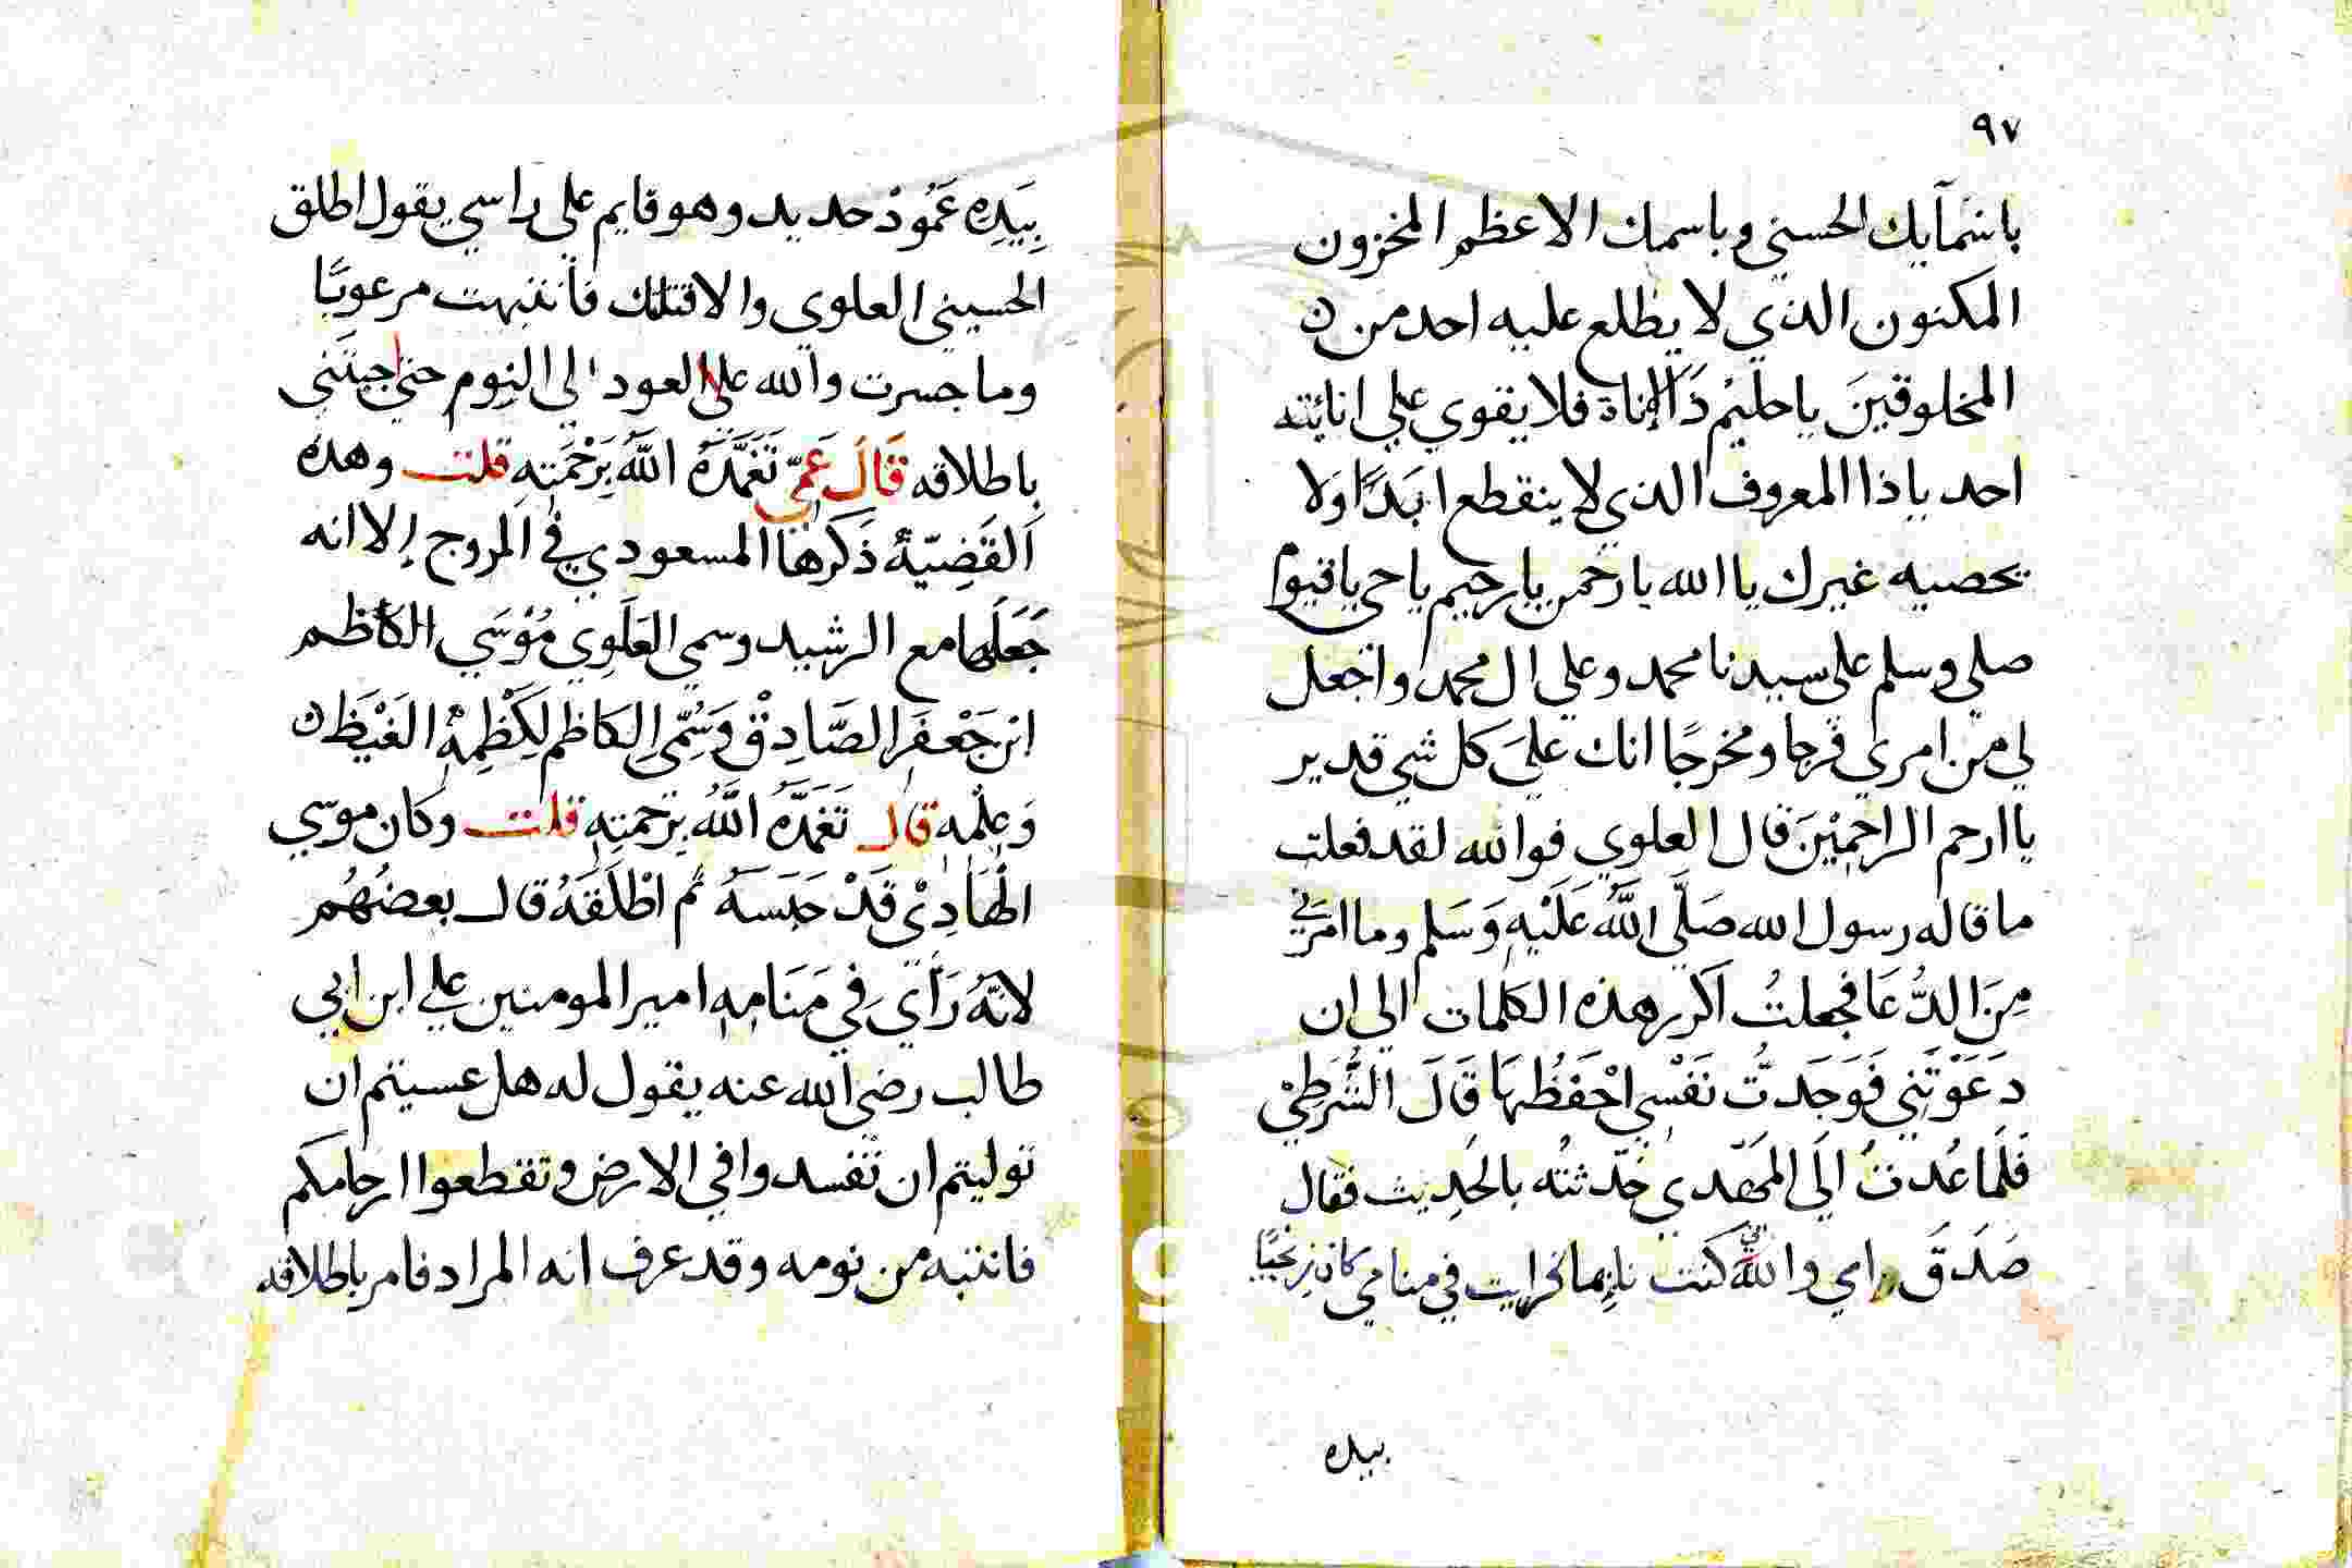 ٩٧
باسْمآيك الحسني وباسمك الاعظم المخزون
المكنون الذي لا يطلع عليه احد من
المخلوقينَ ياحليْم ذَا الاناة فلا يقوي علي انائته
احد ياذا المعروف الذي لا ينقطع ابَدًا وَلا
يحصيه غيرك يا الله يا رحمن يا رحيم يا حي يا قيوم
صلي وسلم علي سيدنا محمد وعلي ال محمد واجعل
لي من امري فرجا ومخرجًا انك عليَ كل شي قدير
يا ارحم الراحمِيْنَ قال العلوي فوالله لقد فعلت
ما قاله رسول الله صَلَّي اللَّهُ عَلَيْهِ وَسَلم وما امرَني
مِنَ الدُّعَا فجعلتُ اكرر هذه الكلمات الي ان
دَعَوْتَنِي فَوَجَدتُّ نَفْسِي احْفَظُهَا قَالَ الشُّرَطِيْ
فَلَما عُدتُ الَي المَهْدي حَدّثتُه بالحَدِيث فقال
صَدَقَ امي والله اني كنت نايما فرايت في منامي كان زنجيًا
بيده
بِيَدِهِ عَمُوْد حديد وهو قايم علي راسي يقول اطلق
الحسيني العلوي والا قتلتك فانتبهت مرعوبًا
وما جسرت والله علي العود الي النوم حتي جيتَني
باطلاقه قَالَ عَمِّي تَغَمَّدَهُ اللَّهُ بِرَحْمَتِهِ قلت وهذه
القَضِيّةُ ذَكَرهَا المسعودي في المروج إلا انه
جَعَلَها مع الرشيد وسمي العَلَوِي مُوْسَي الكاظم
ابن جَعْفَر الصَّادِقْ وَسُمّي الكَاظم لِكَظْمِهِ الغَيْظَ
وَعِلْمه قال تَغَمَّدَهُ اللَّهُ بِرَحمتِهِ قلت وكان موسي
الهَادِيْ قَدْ حَبَسَهُ ثم اطْلَقَهُ قال بعضُهُم
لانّهُ رَأَي فِي مَنَامِهِ امير المومنين علي ابن ابي
طالب رضي الله عنه يقول له هل عسيتم ان
توليتم ان تفسدوا في الارض وتقطعوا ارحامكم
فانتبه من نومه وقد عرف انه المراد فامر باطلاقه